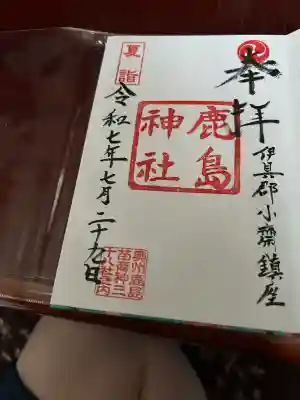 奉拝
伊具郡小齋鎮座
鹿島
神社
夏詣
令和七年七月二十九日
奥州鹿島
苗裔神三
十八社之内